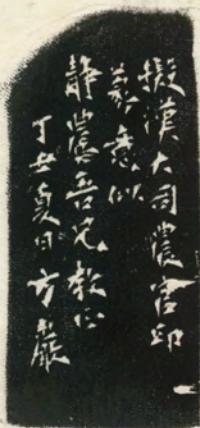 擬漢大司農官印
篆意似
靜農吾兄教正
丁亥夏日方嚴